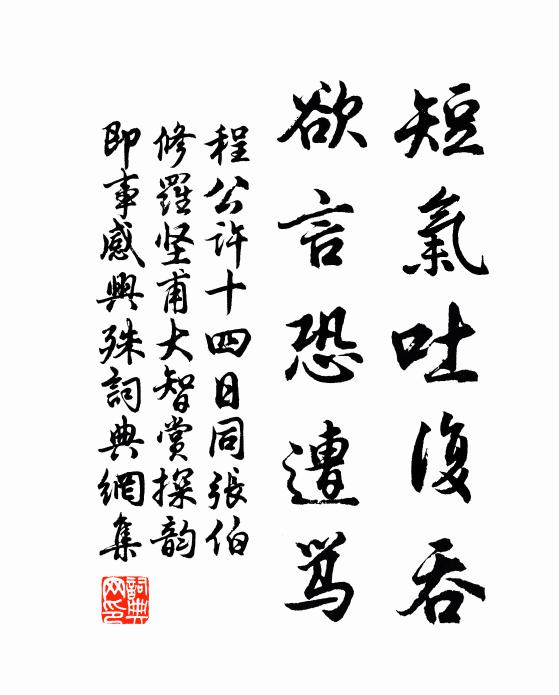 短氣吐復吞
欲言恐遭骂
程公許十四日同張伯
修羅坚甫大智賞探韵
即事感興殊詞典網集
詞典網印